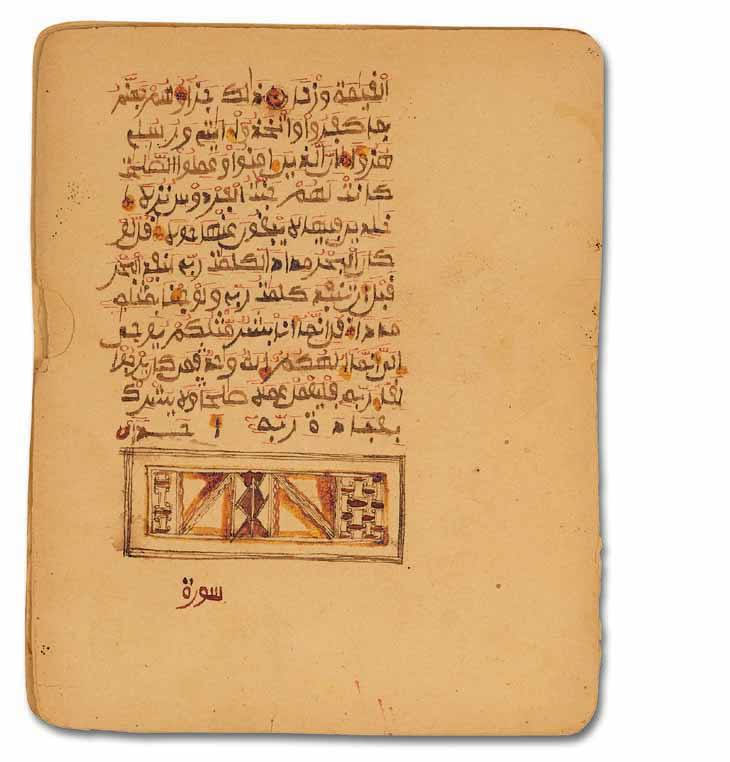 القيمة وزنا ذلك جزاوهم جهنم
بما كفروا واتخذوا ايتي ورسلي
هزوا ان الذين امنوا وعملوا الصلحت
كانت لهم جنت الفردوس نزلا
خلدين فيها لا يبغون عنها حولا قل لو
كان البحر مدادا لكلمت ربي لنفد البحر
قبل ان تنفد كلمت ربي ولو جينا بمثله
مددا قل انما انا بشر مثلكم يوحى
الي انما الهكم اله وحد فمن كان يرجوا
لقا ربه فليعمل عملا صلحا ولا يشرك
بعبادة ربه احدا
سورة